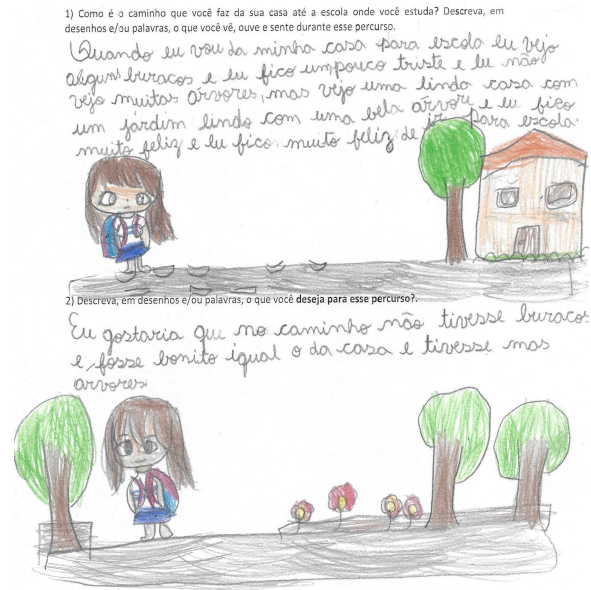 1) Como é o caminho que você faz da sua casa até a escola onde você estuda? Descreva, em
desenhos e/ou palavras, o que você vê, ouve e sente durante esse percurso.
Quando eu vou da minha casa para escola eu vejo
alguns buracos e eu fico umpouco triste e eu não
vejo muitas árvores, mas vejo uma linda casa com
um jardim lindo com uma bela árvore e eu fico
muito feliz e eu fico muito feliz de ir para escola.
2) Descreva, em desenhos e/ou palavras, o que você deseja para esse percurso?.
Eu gostaria que no caminho não tivesse buracos
e fosse bonito igual o da casa e tivesse mas
arvores